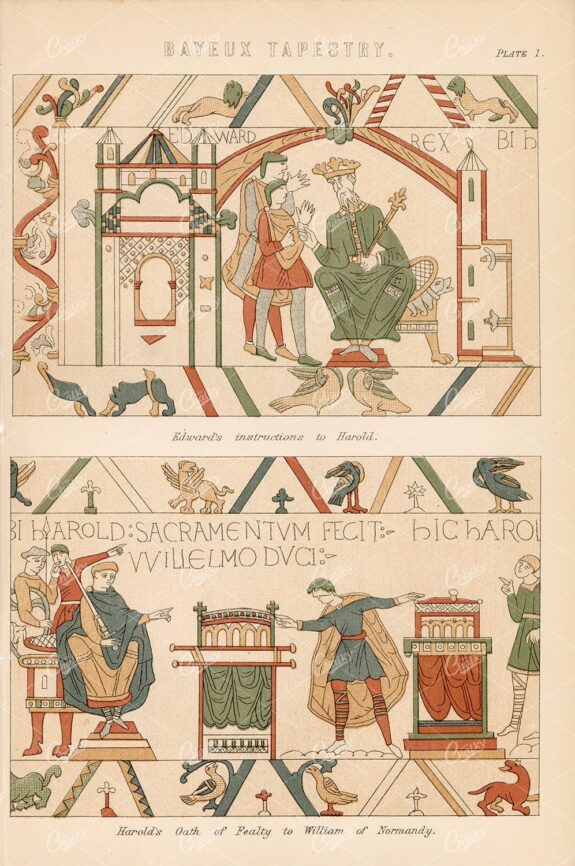 BAYEUX TAPESTRY.
PLATE 1.
EDWARD REX BI h
Edward's instructions to Harold.
BI hAROLD:SACRAMENTVM FECIT:~ hIC hAROL
VVILLELMO DVCI:~
Harold's Oath of Fealty to William of Normandy.